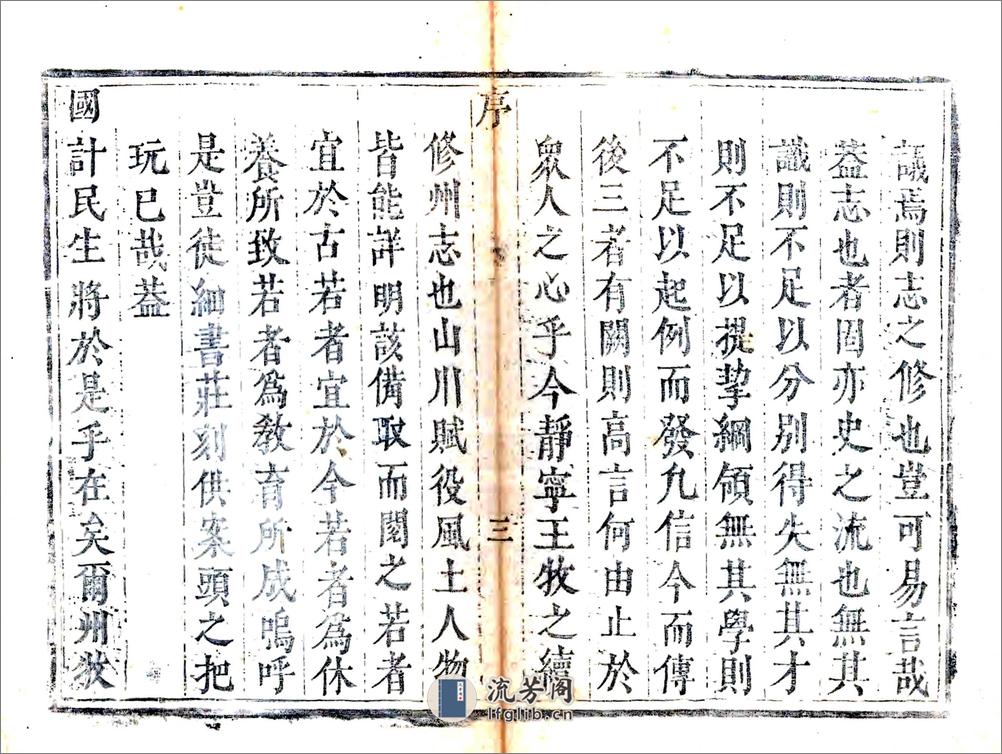 議焉則志之修也豈可易言哉
葢志也者固亦史之流也無其
識則不足以分別得失無其才
則不足以提挈綱領無其學則
不足以起例而發凡信今而傳
後三者有闕則高言何由止於
眾人之心乎今靜寧王牧之續
序
三
修州志也山川賦役風土人物
皆能詳明該備取而閱之若者
宜於古若者宜於今若者為休
養所致若者為教育所成嗚呼
是豈徒細書莊刻供案頭之把
玩已哉葢
國計民生將於是乎在矣爾州牧
流芳阁
lfglib.cn